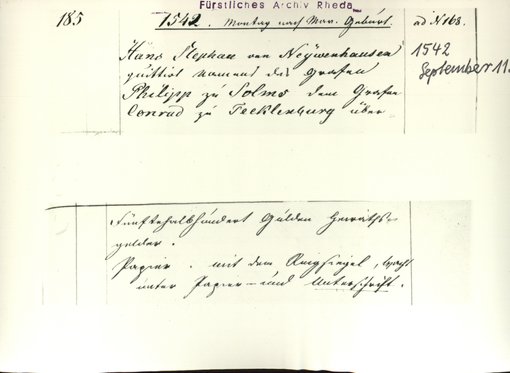 Fürstliches Archiv Rheda
185
1542. Montag nach Mar. Geburt.
ad N 168.
1542
September 11.
Hans Stephan von Neÿwenhausen
quittirt namens des Grafen
Philipp zu Solms dem Grafen
Conrad zu Tecklenburg über
Fünftehalbhundert Gulden Heiraths-
gelder.
Papier. mit dem Ringsiegel,
unter Papier - und Unterschrift.